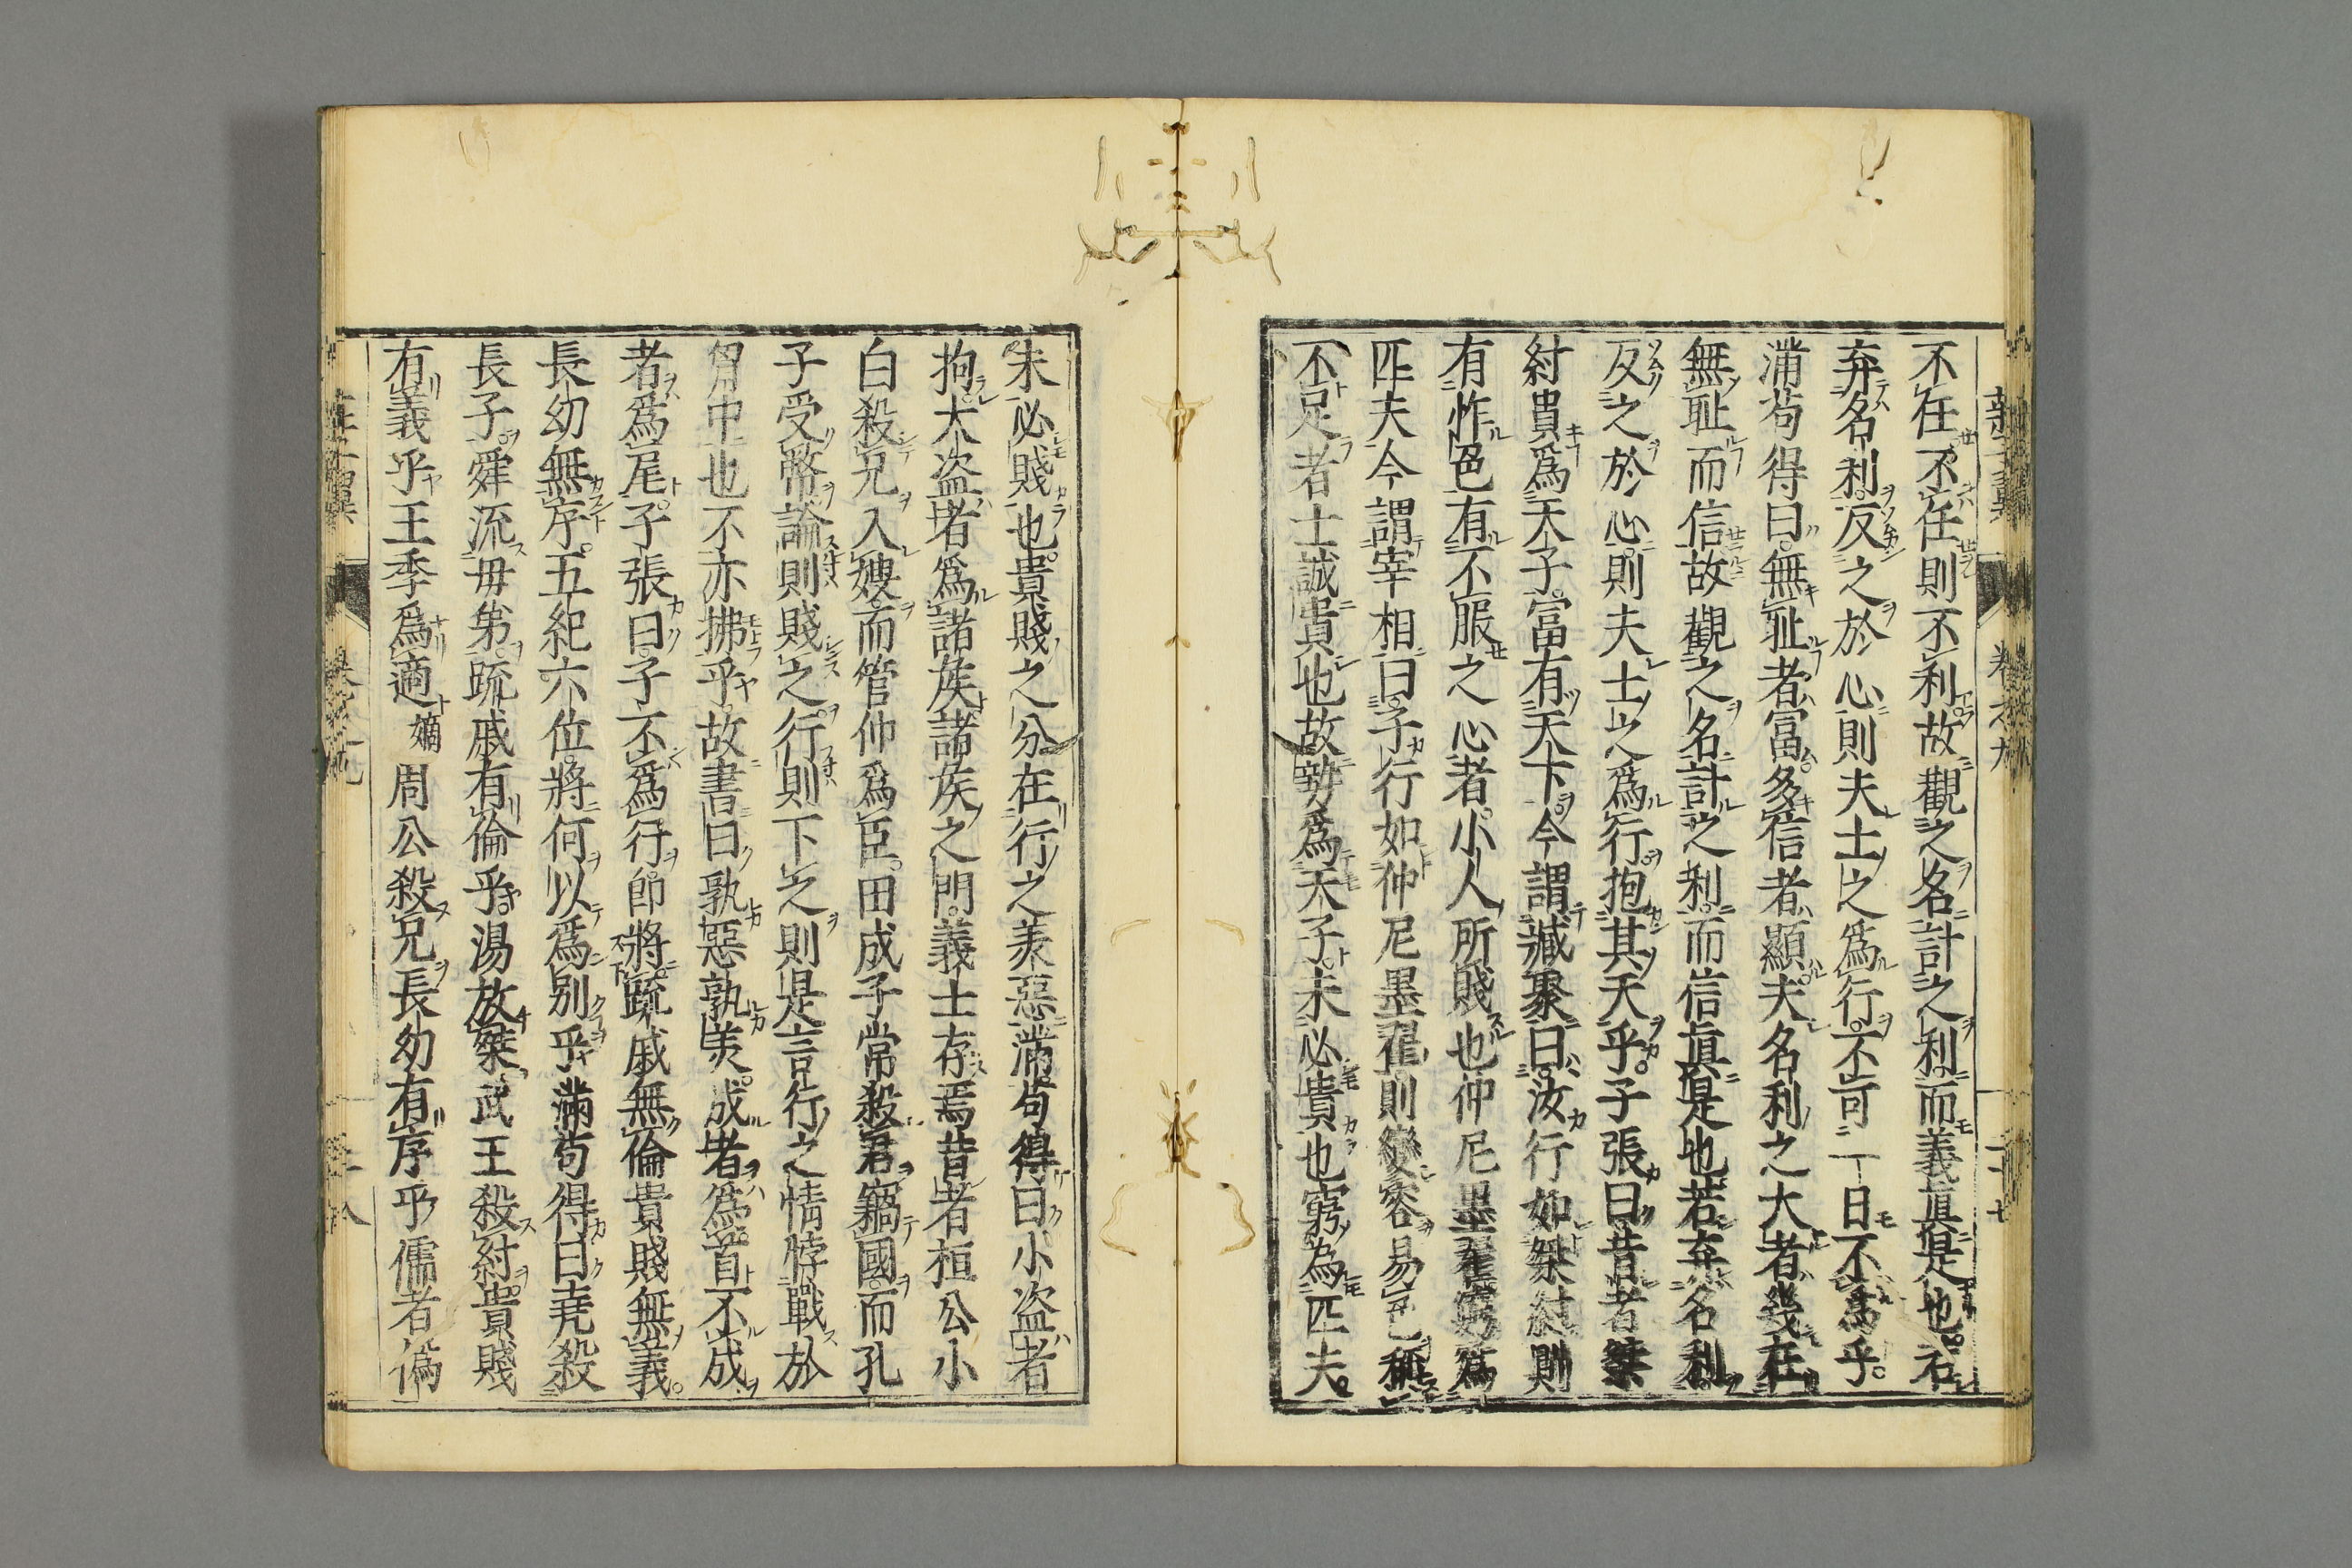 不任不任則不利故觀之名計之利而義眞是也若
弃名利反之於心則夫士之爲行不可一日不爲乎
滿苟得曰無耻者富多信者顯夫名利之大者幾在
無耻而信故觀之名計之利而信眞是也若弃名利
反之於心則夫士之爲行抱其天乎子張曰昔者桀
紂貴爲天子富有天下今謂臧聚曰汝行如桀紂則
有怍色有不服之心者小人所賤也仲尼墨翟窮爲
匹夫今謂宰相曰子行如仲尼墨翟則變容易色稱
不足者士誠貴也故勢爲天子未必貴也窮爲匹夫
未必賤也貴賤之分在行之羙惡滿苟得曰小盗者
拘大盗者爲諸矦諸矦之門義士存焉昔者桓公小
白殺兄入嫂而管仲爲臣田成子常殺君竊國而孔
子受幣論則賤之行則下之則是言行之情悖戰於
胷中也不亦拂乎故書曰孰惡孰羙成者爲首不成
者爲尾子張曰子不爲行即將疏戚無倫貴賤無義
長幼無序五紀六位將何以爲別乎滿苟得曰堯殺
長子舜流毋弟疏戚有倫乎湯放桀武王殺紂貴賤
有義乎王季爲適嫡周公殺兄長幼有序乎儒者僞